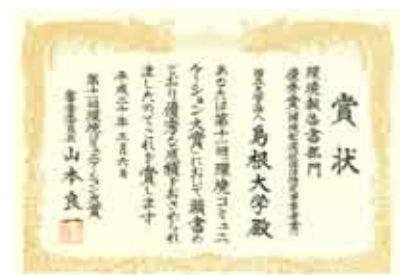 賞状
環境報告書部門
優秀賞
国立大学法人 島根大学殿
あなたは第十一回「環境コミュニ
ケーション大賞」において頭書の
とおり優秀な成績をおさめられ
ましたのでこれを賞します
平成二十年三月六日
第十一回環境コミュニケーション大賞
審査委員長 山本良一